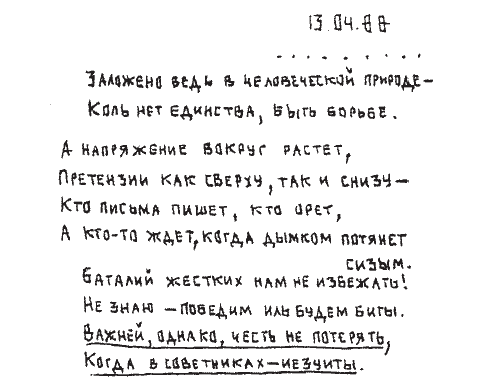 13.04.88
. . . . . . . .
Заложено ведь в человеческой природе—
Коль нет единства, быть борьбе.
А напряжение вокруг растет,
Претензии как сверху, так и снизу—
Кто письма пишет, кто орет,
А кто-то ждет, когда дымком потянет
сизым.
Баталий жестких нам не избежать!
Не знаю — победим иль будем биты.
Важней, однако, честь не потерять,
Когда в советниках—иезуиты.